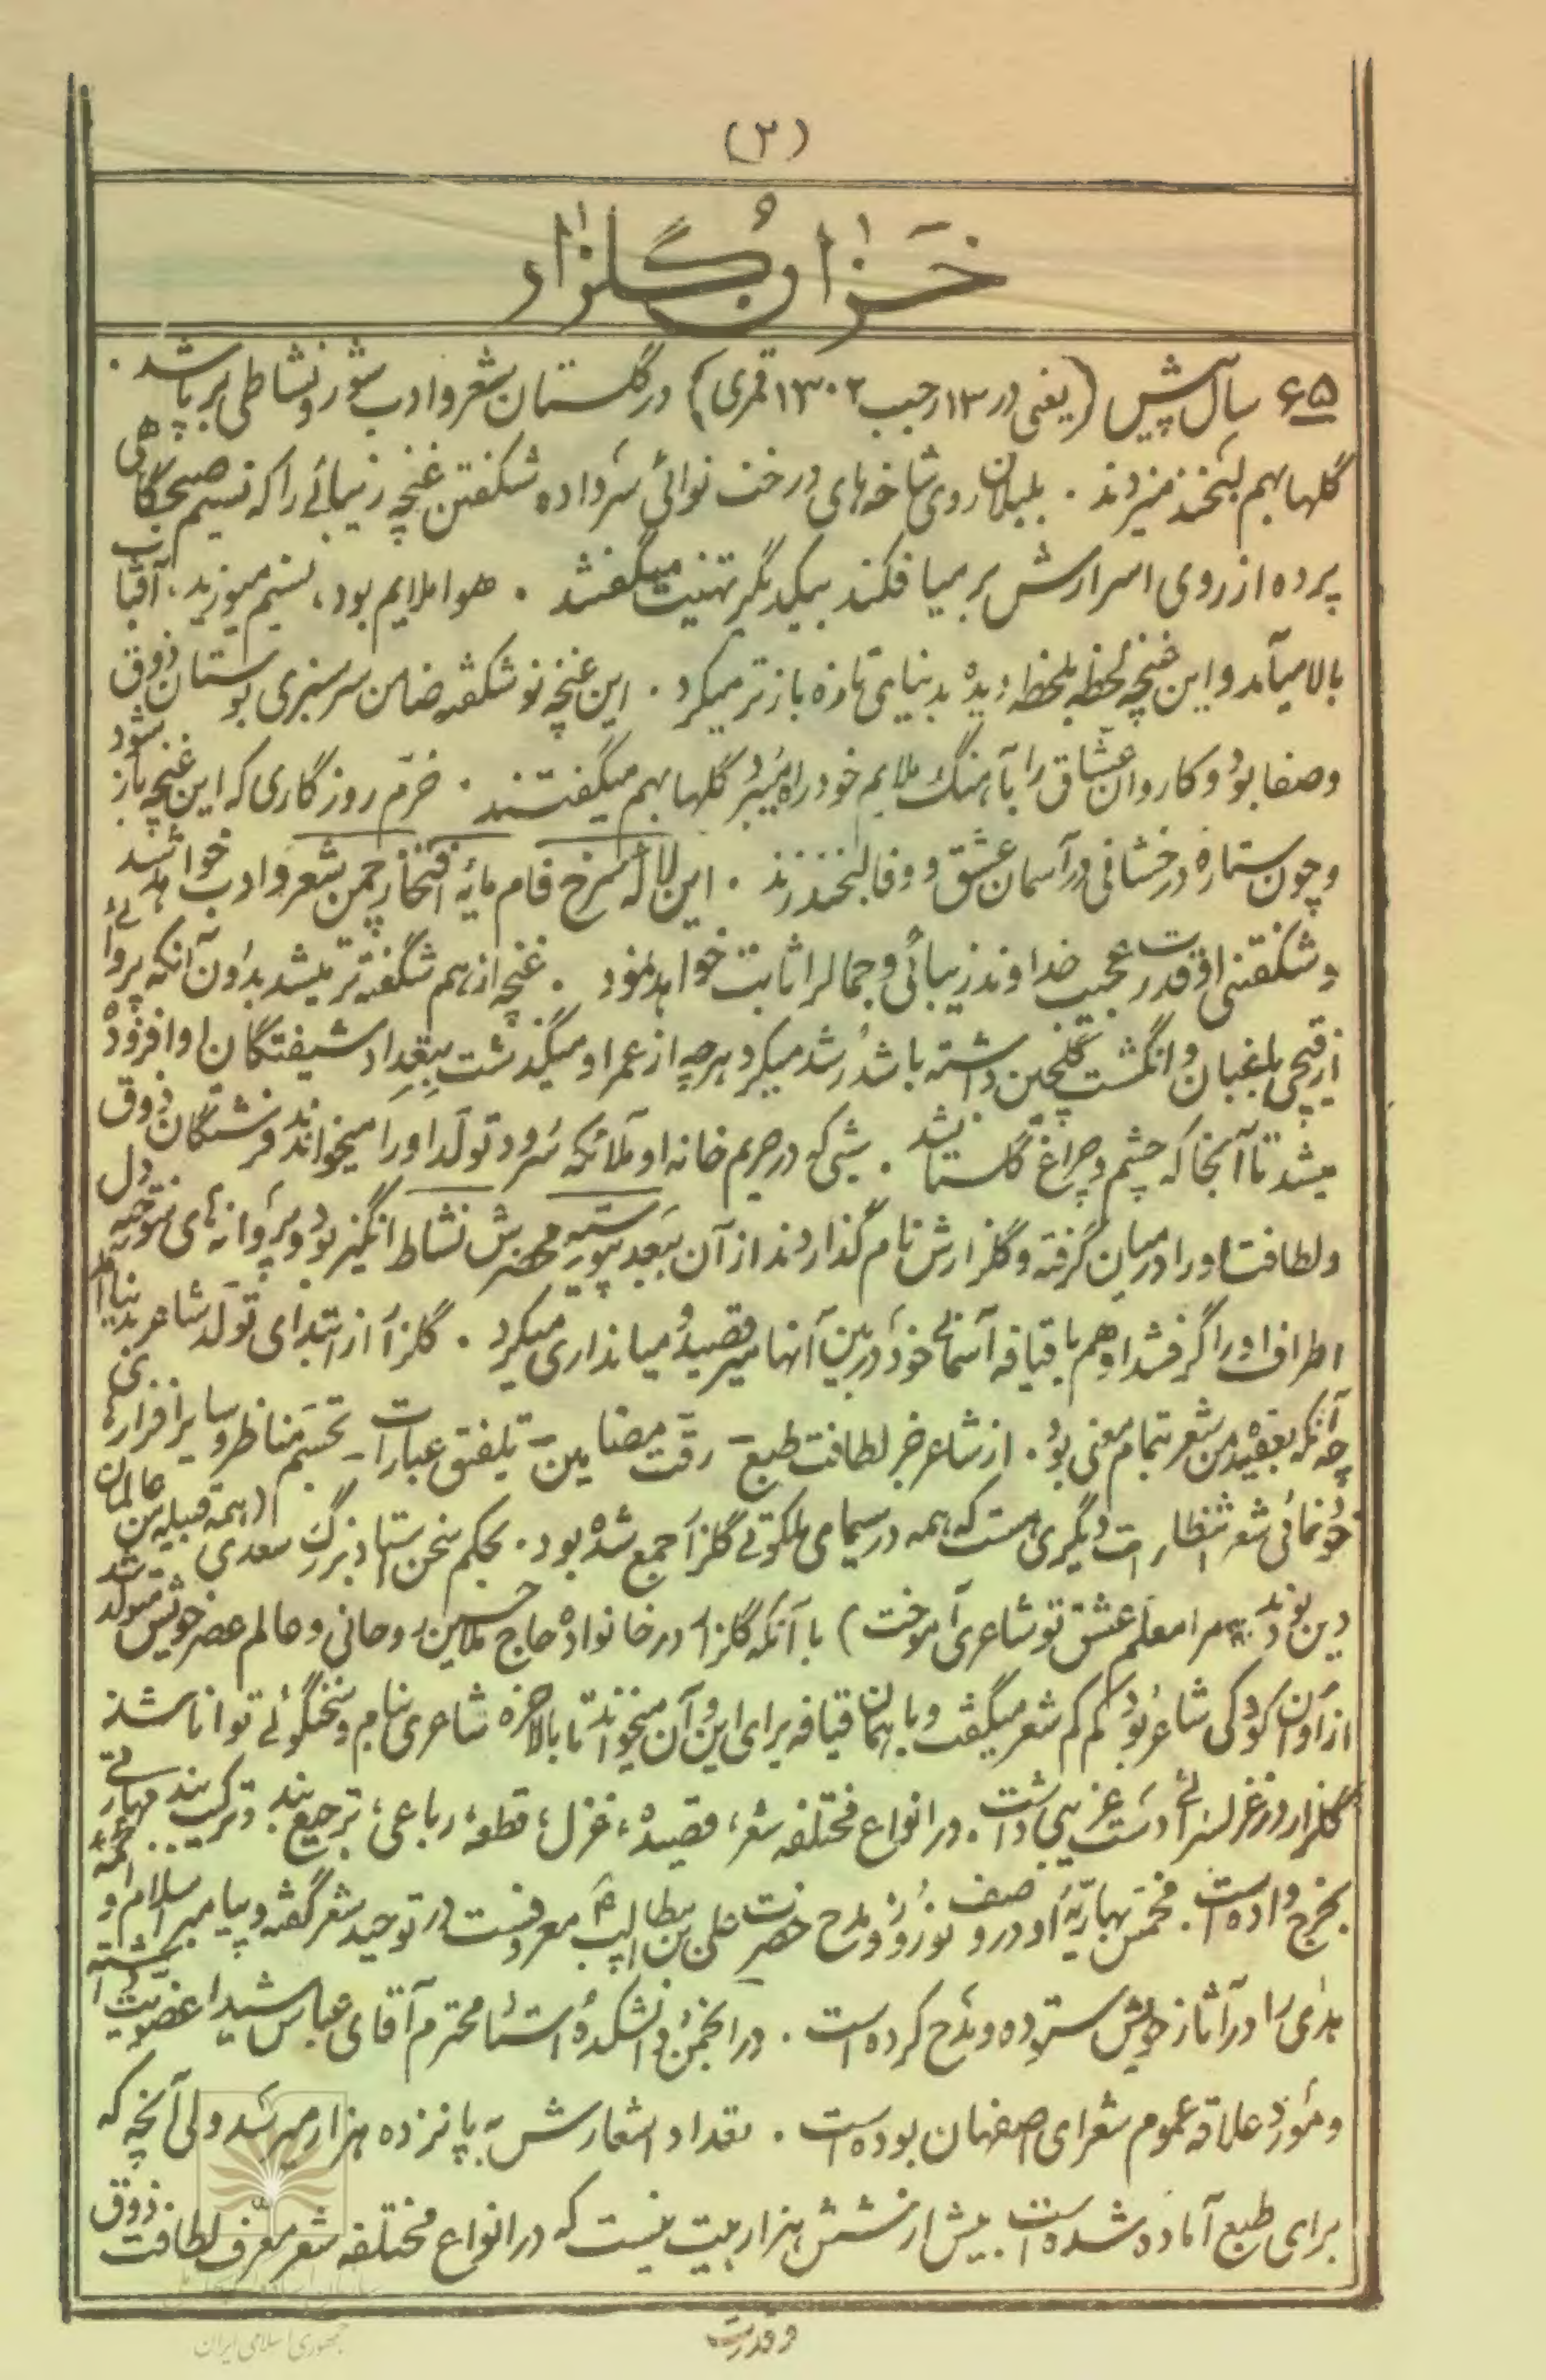 (۲)
خزان گلزار
۶۵ سال پیش (یعنی در ۱۳ رجب ۱۳۰۲ قمری) در گلستان شعر و ادب شور و نشاطی برپا شد.
گلها بهم لبخند میزدند . بلبلان روی شاخه‌های درخت نوائی سر داده شکفتن غنچه زیبائی را که نسیم صبحگاهی
پرده از روی اسرارش بر میافکند بیکدیگر تهنیت میگفتند . هوا ملایم بود، نسیم میوزید، آفتاب
بالا میآمد و این غنچه لحظه بلحظه دیده بدنیای تازه بازتر میکرد . این غنچه نوشکفته ضامن سرسبزی بوستان ذوق
و صفا بود و کاروان عشاق را بآهنگ ملایم خود راه میبرد گلها بهم میگفتند . خرّم روزگاری که این غنچه باز شود
و چون ستاره درخشانی در آسمان عشق و وفا لبخند زند . این لاله سرخ فام مایهٔ افتخار چمن شعر و ادب خواهد شد
و شکفتنی او قدرت عجیب خداوند زیبائی و جمال را ثابت خواهد نمود . غنچه از هم شگفته‌تر میشد بدون آنکه پروائی
از قیچی باغبان و انگشت گلچین داشته باشد رشد میکرد هرچه از عمر او میگذشت بتعداد شیفتگان او افزوده
میشد تا آنجا که چشم و چراغ گلستان شد . شبی که در حریم خانه او ملائکه سرود تولد او را میخواندند فرشتگان ذوق
و لطافت او را در میان گرفته و گلزارش نام گذاردند از آن ببعد پیوسته محضرش نشاط انگیز بود و پروانه‌های سوخته دل
اطراف او را گرفتند او هم با قیافه آسمانی خود در بین آنها میرقصید و میانداری میکرد . گلزار از ابتدای تولد شاعر بدنیا آمد
چه آنکه بعقیده من شعر بتمام معنی بود . از شاعر جز لطافت طبع - رقت مضامین - تلفیق عبارات - تجسم مناظر و سایر افزارهای
خودنمائی شعر انتظارات دیگری هست که همه در سیمای ملکوتی گلزار جمع شده بود. بحکم سخن استاد بزرگ سعدی (همه قبیله من عالمان
دین بودند * مرا معلم عشق تو شاعری آموخت) با آنکه گلزار در خانواده حاج ملاحسین روحانی و عالم عصر خویش متولد شد
از اوان کودکی شاعر بود کم کم شعر میگفت و با همان قیافه برای این و آن میخواند تا بالاخره شاعری بنام و سخنگوئی توانا شد
گلزار در غزلسرائی دست غریبی داشت. در انواع مختلفه شعر، قصیده، غزل، قطعه، رباعی، ترجیع بند و ترکیب بند مهارتی
بخرج داده است. مخمس بهاریّهٔ او در وصف نوروز و مدح حضرت علی بن ابیطالب معروفست در توحید شعر گفته و پیامبر اسلام و ائمه
هدی را در آثار خویش ستوده و مدح کرده است . در انجمن دانشکده استاد محترم آقای عباس شیدا عضویت داشته
و مورد علاقه عموم شعرای اصفهان بوده است . تعداد اشعارش به پانزده هزار میرسد ولی آنچه که
برای طبع آماده شده است. بیش از شش هزار بیت نیست که در انواع مختلفه شعر معرّف لطافت ذوق
و قدرت
جمهوری اسلامی ایران